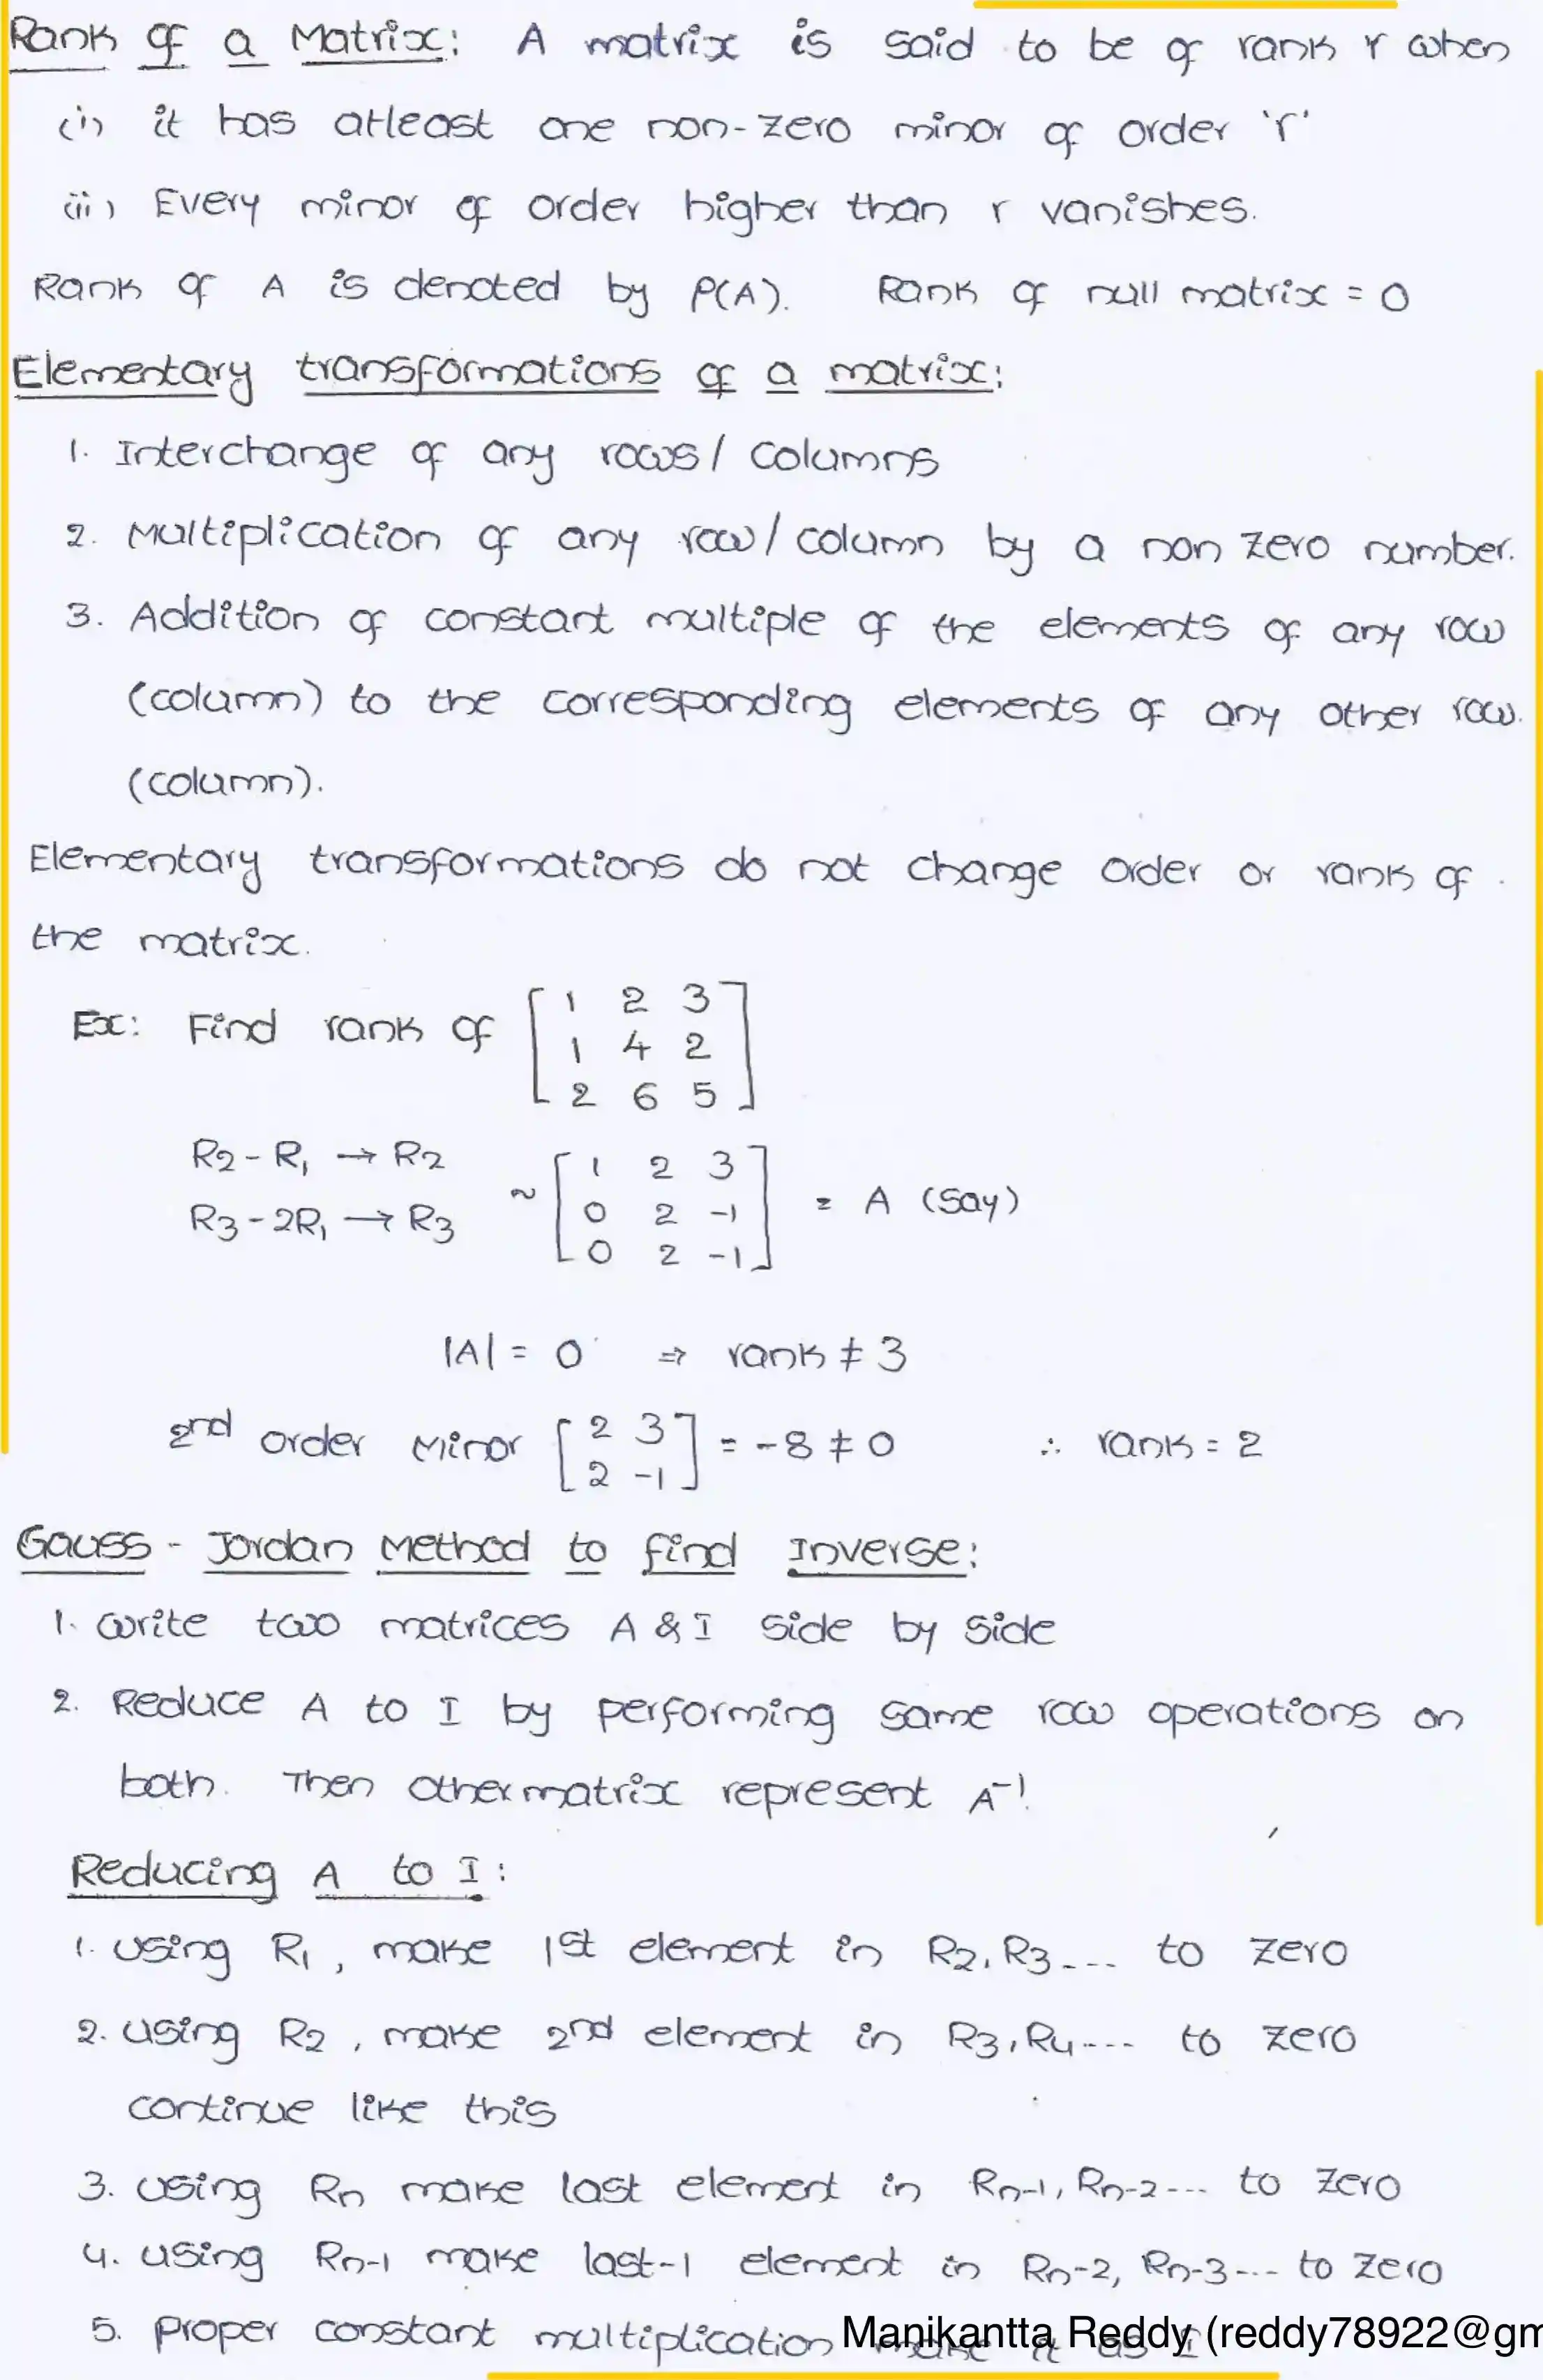 Rank of a Matrix: A matrix is said to be of rank r when
(i) it has atleast one non-zero minor of order 'r'
(ii) Every minor of order higher than r vanishes.
Rank of A is denoted by ρ(A). Rank of null matrix = 0
Elementary transformations of a matrix:
1. Interchange of any rows / columns
2. Multiplication of any row / column by a non zero number.
3. Addition of constant multiple of the elements of any row
(column) to the corresponding elements of any other row.
(column).
Elementary transformations do not change order or rank of
the matrix.
Ex: Find rank of [1 2 3
1 4 2
2 6 5]
R2 - R1 → R2
R3 - 2R1 → R3 ~ [1 2 3
0 2 -1
0 2 -1] = A (say)
|A| = 0 ⇒ rank ≠ 3
2nd order Minor [2 3
2 -1] = -8 ≠ 0 ∴ rank = 2
Gauss - Jordan Method to find Inverse:
1. Write two matrices A & I side by side
2. Reduce A to I by performing same row operations on
both. Then other matrix represent A⁻¹.
Reducing A to I:
1. using R1, make 1st element in R2, R3 --- to zero
2. using R2, make 2nd element in R3, R4 --- to zero
continue like this
3. using Rn make last element in Rn-1, Rn-2 --- to zero
4. using Rn-1 make last-1 element in Rn-2, Rn-3 --- to zero
5. Proper constant multiplication make it as I
Manikantta Reddy (reddy78922@gm